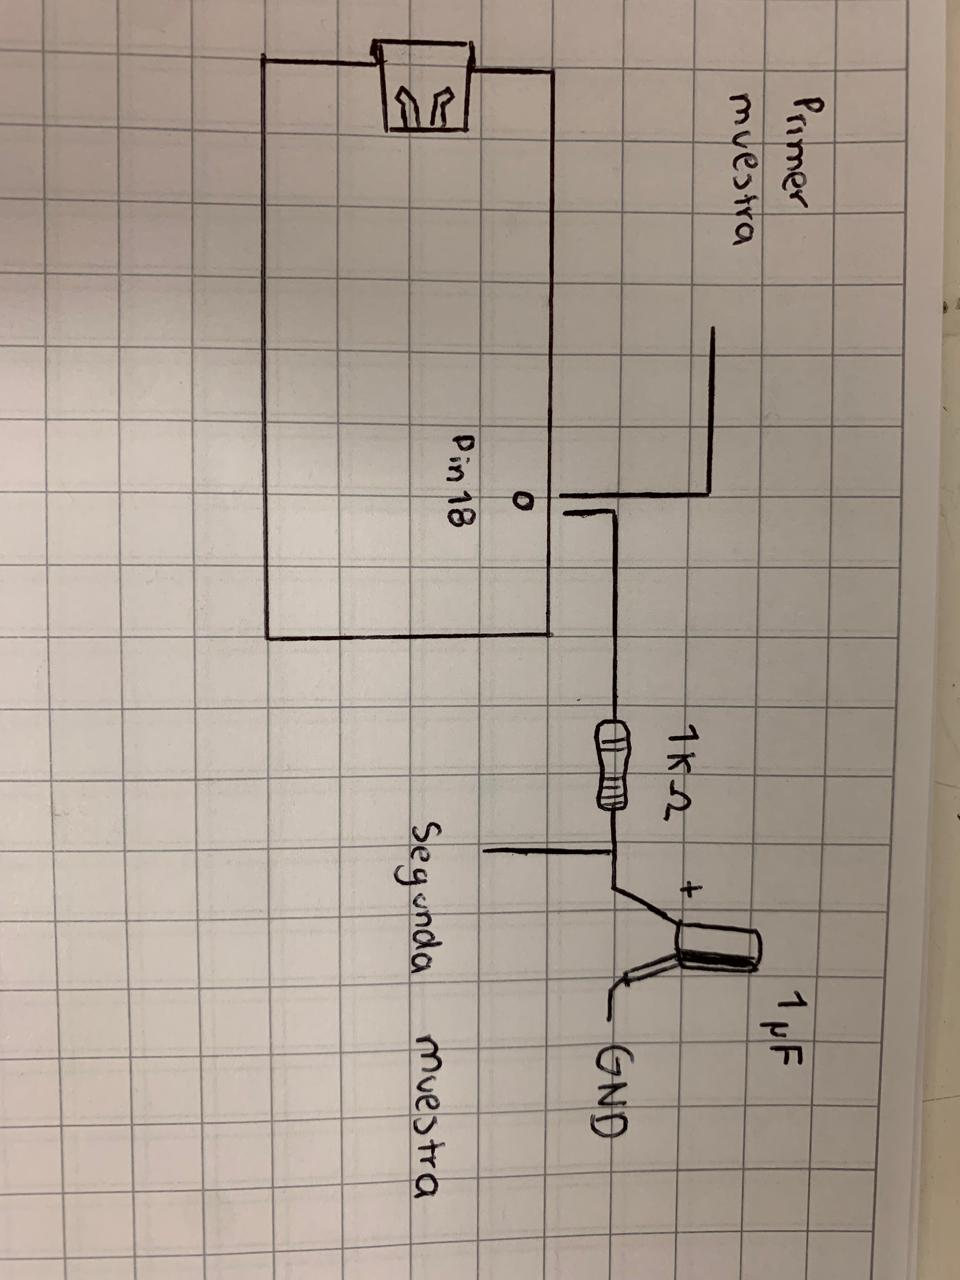 Primer
muestra
1 μF
1K Ω
+
GND
Pin 18
Segunda muestra